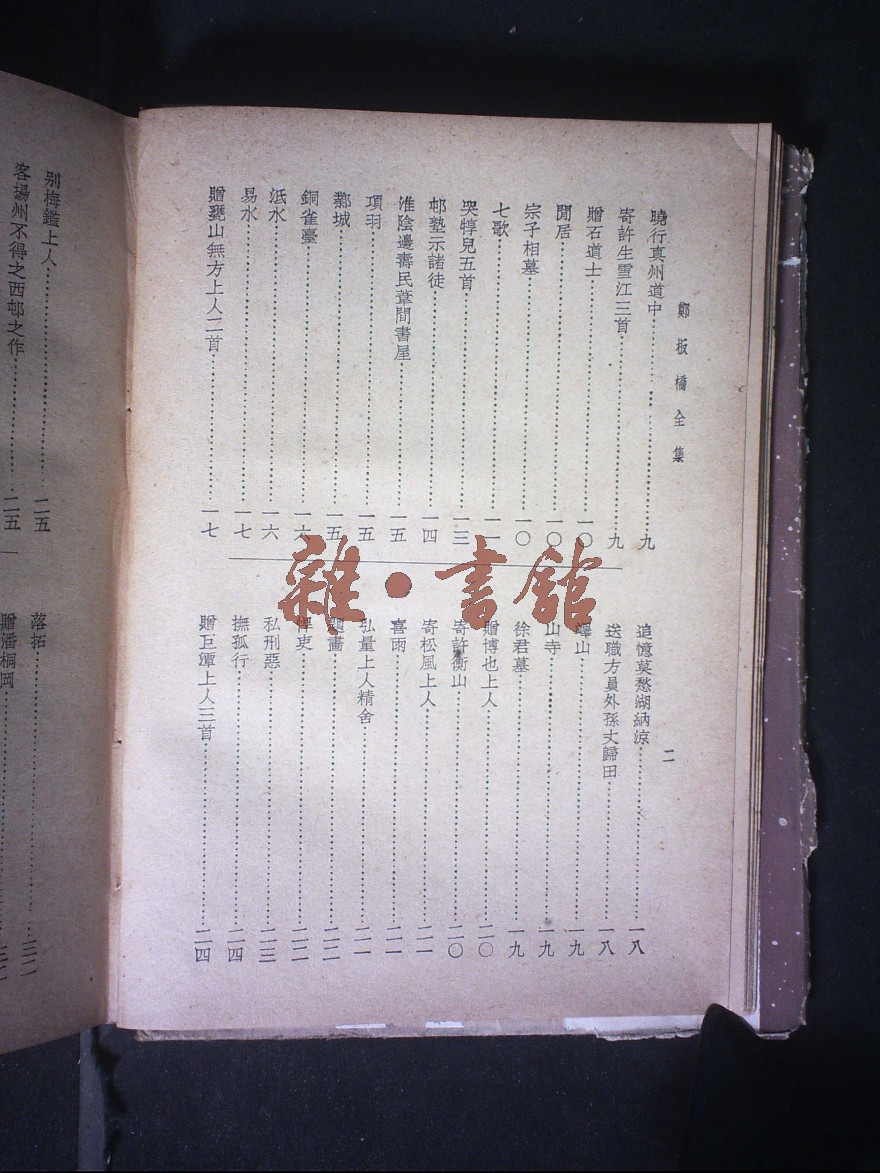 鄭板橋全集
二
曉行真州道中 九
寄許生雪江三首 九
贈石道士 一〇
閒居 一〇
宗子相墓 一〇
七歌 一一
哭犉兒五首 一三
邨塾示諸徒 一四
淮陰邊壽民葦間書屋 一五
項羽 一五
鄴城 一五
銅雀臺 一六
泜水 一六
易水 一七
贈甕山無方上人二首 一七
追憶莫愁湖納涼 一八
送職方員外孫丈歸田 一八
山 一九
山寺 一九
徐君墓 一九
贈博也上人 二〇
寄許衡山 二〇
寄松風上人 二一
喜雨 二一
弘量上人精舍 二一
題畫 二二
悍吏 二二
私刑惡 二三
撫孤行 二四
贈巨潭上人三首 二四
別梅鑑上人 二五
客揚州不得之西邨之作 二五
落拓 三三
贈潘桐岡
雜·書館